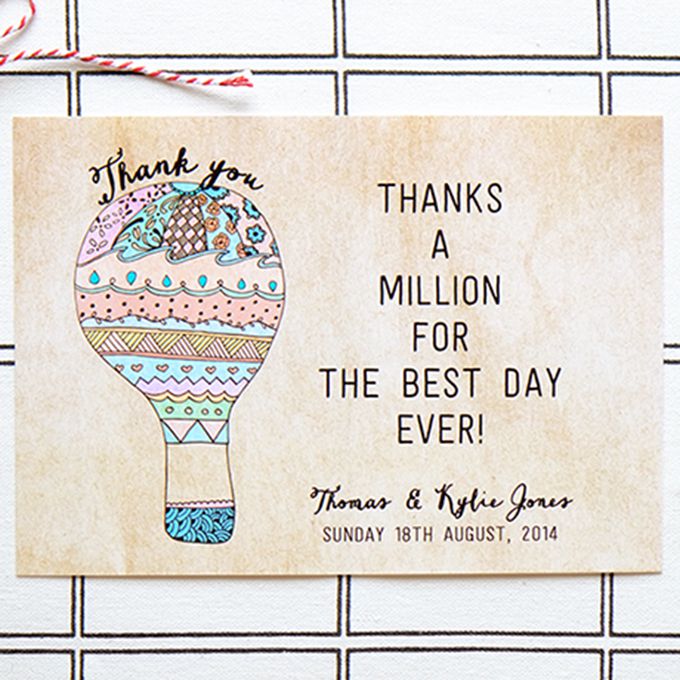 Thank you
THANKS
A
MILLION
FOR
THE BEST DAY
EVER!
Thomas & Kylie Jones
SUNDAY 18TH AUGUST, 2014